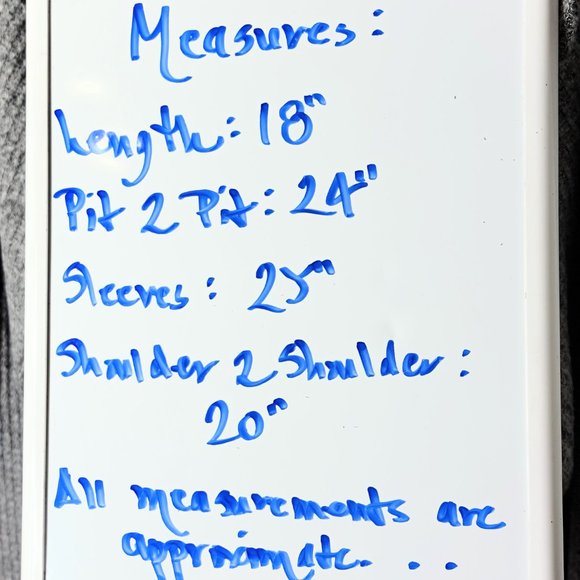 Measures:
Length: 18"
Pit 2 Pit: 24"
Sleeves: 25"
Shoulder 2 Shoulder:
20"
All measurements are
approximate. . .